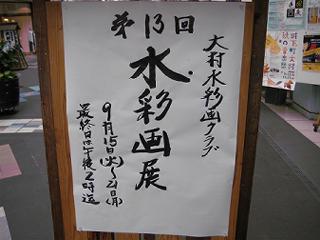 大村水彩画クラブ
第13回
水彩画展
9月15日(火)～21日(月)
最終日は午後2時迄